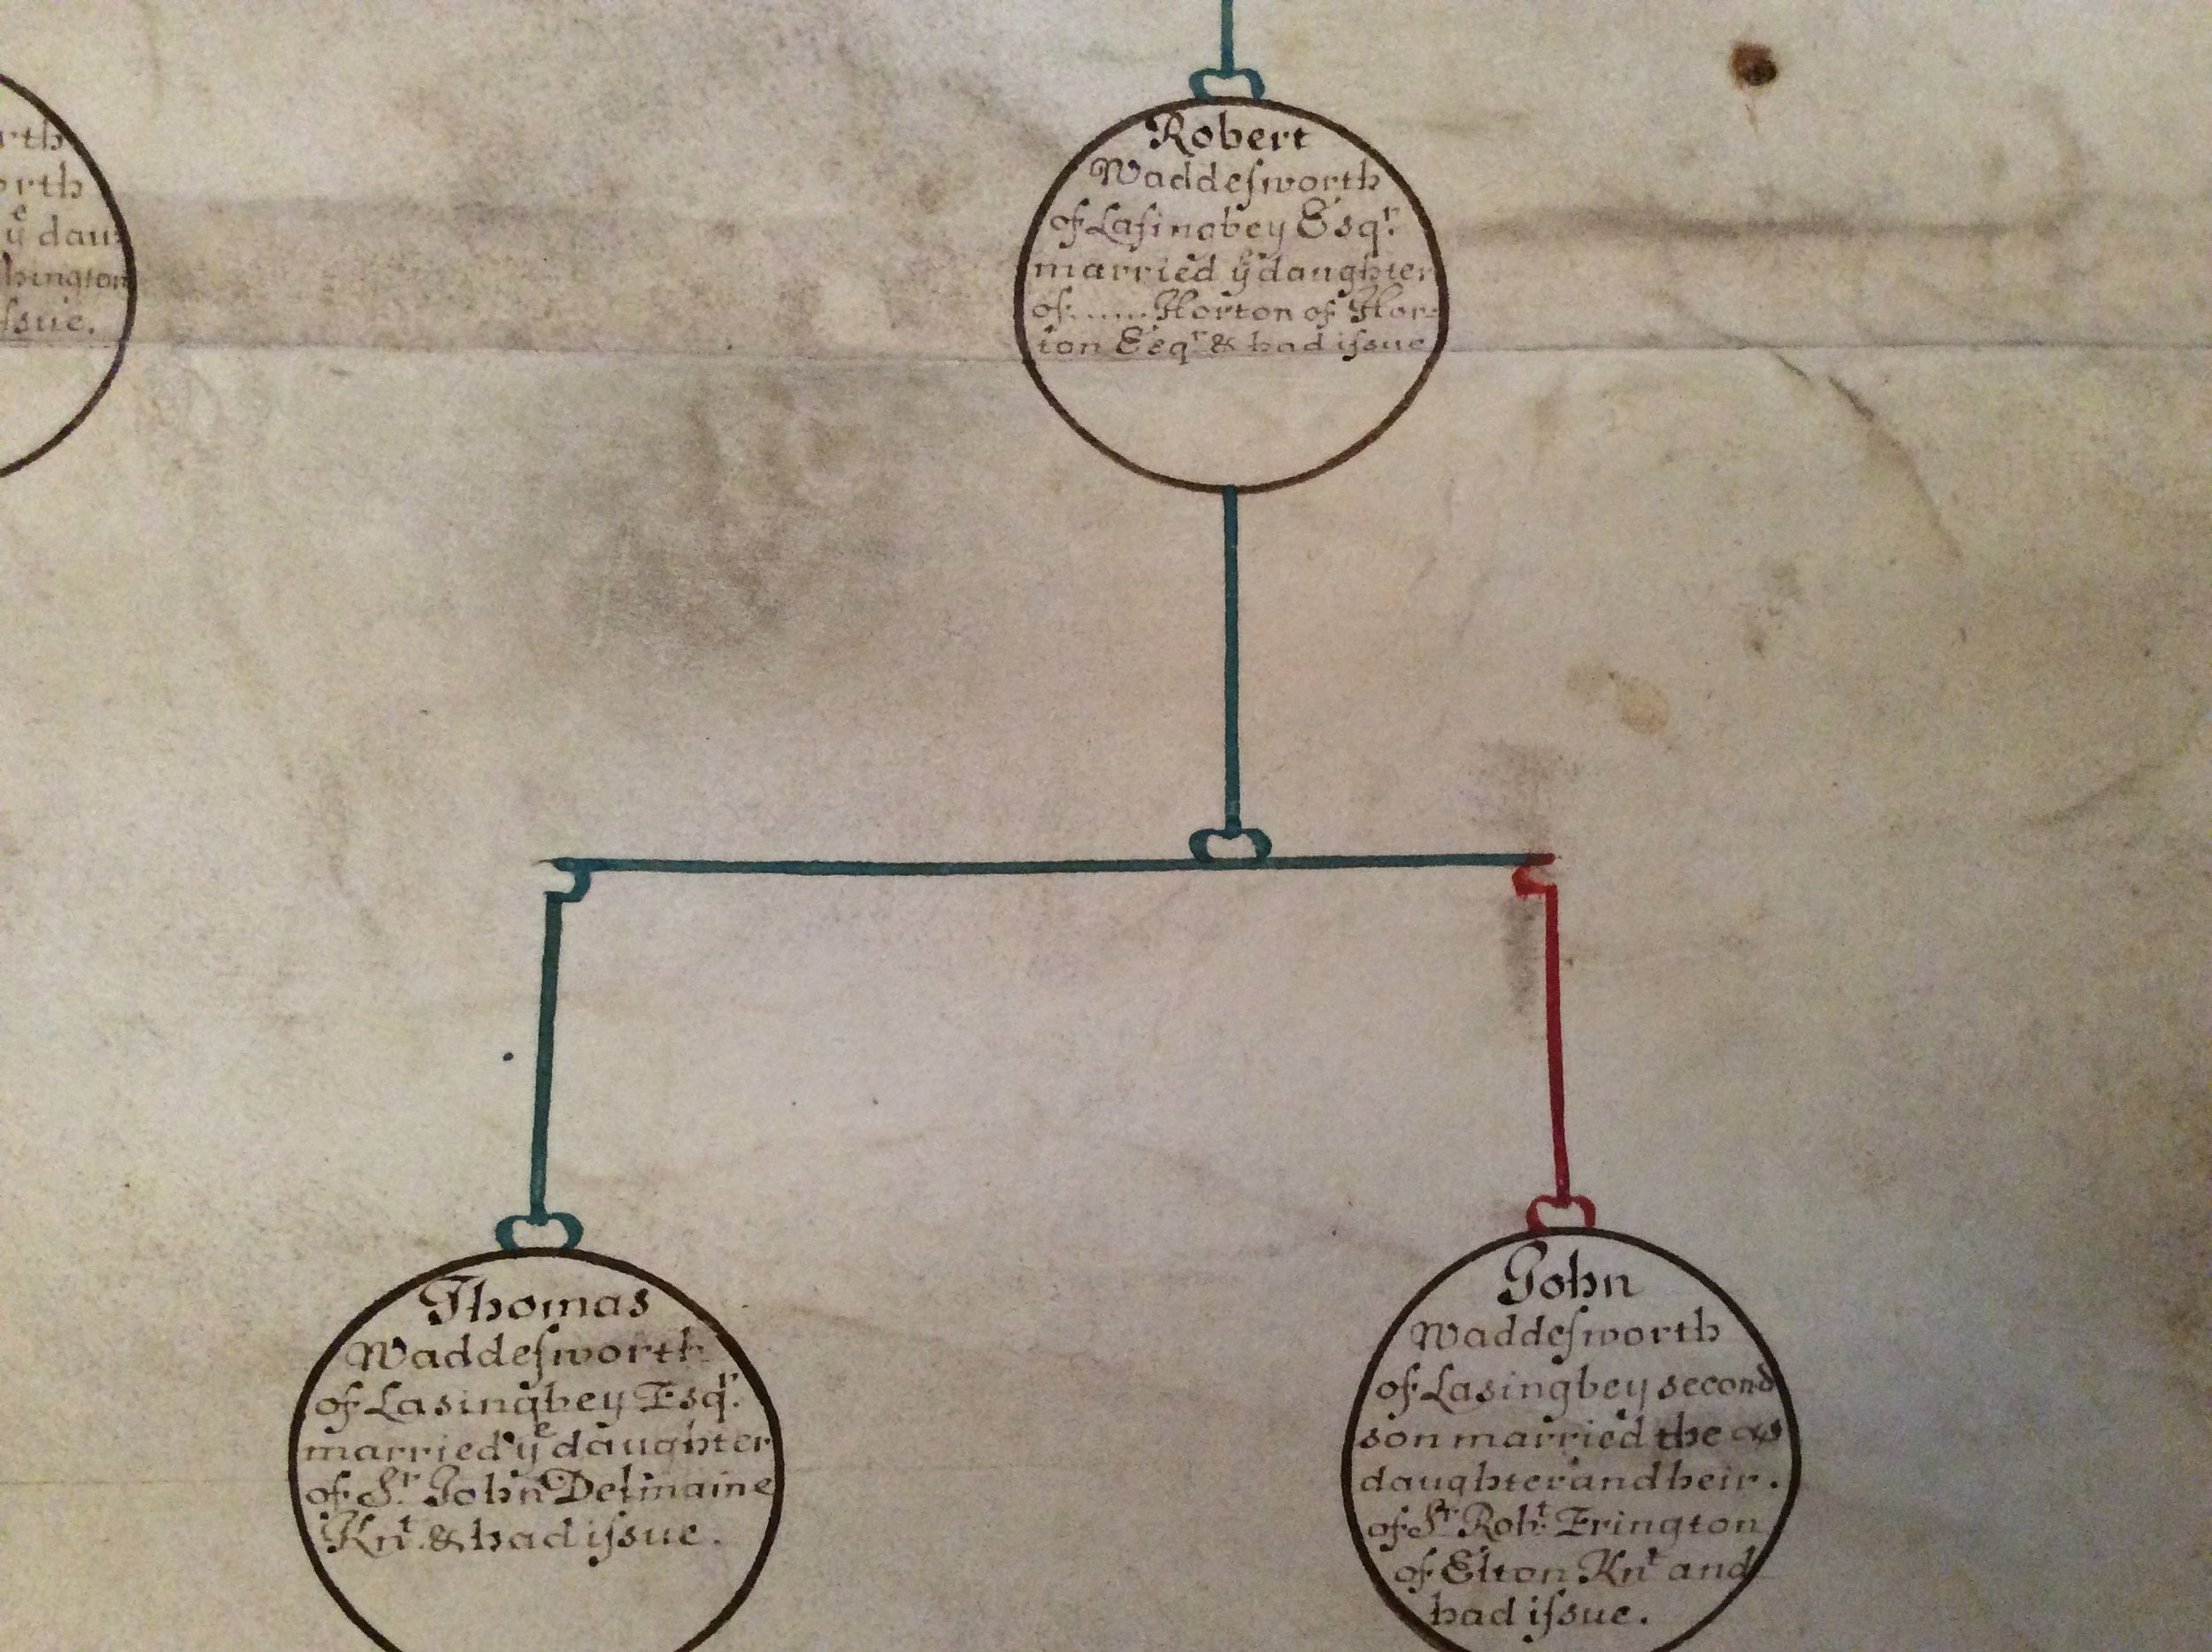 rth
orth
yͤ dau:
hington
ſsue.
Robert
Waddeſworth
of Laſingbey Esqʳ.
married yͤ daughter
of ...... Horton of Hor=
ton Esqʳ & had iſsue
Thomas
Waddeſworth
of Lasingbey Esqʳ.
married yͤ daughter
of Sʳ. John Delmaine
Knᵗ. & had iſsue.
John
Waddeſworth
of Lasingbey second
son married the
daughter and heir.
of Sʳ. Robᵗ. Erington
of Elton Knᵗ and
had iſsue.